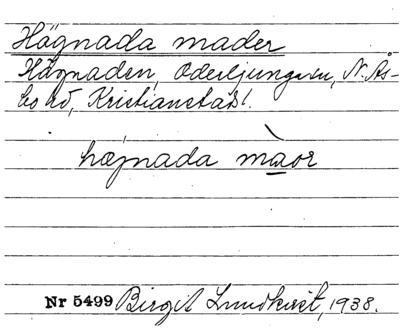 Hägnada mader
Hägnaden, Oderljunga sn, N. Ås-
bo hd, Kristianstads l.
hæjnada màor
Nr 5499 Birgit Lundkvist, 1938.